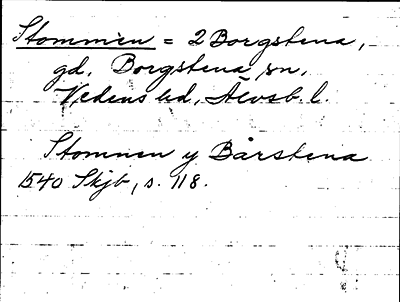 Stommen = 2 Borgstena,
gd, Borgstena sn,
Vedens hd, Älvsb. l.
Stomnen y Bårstena
1540 Skjb, s. 118.